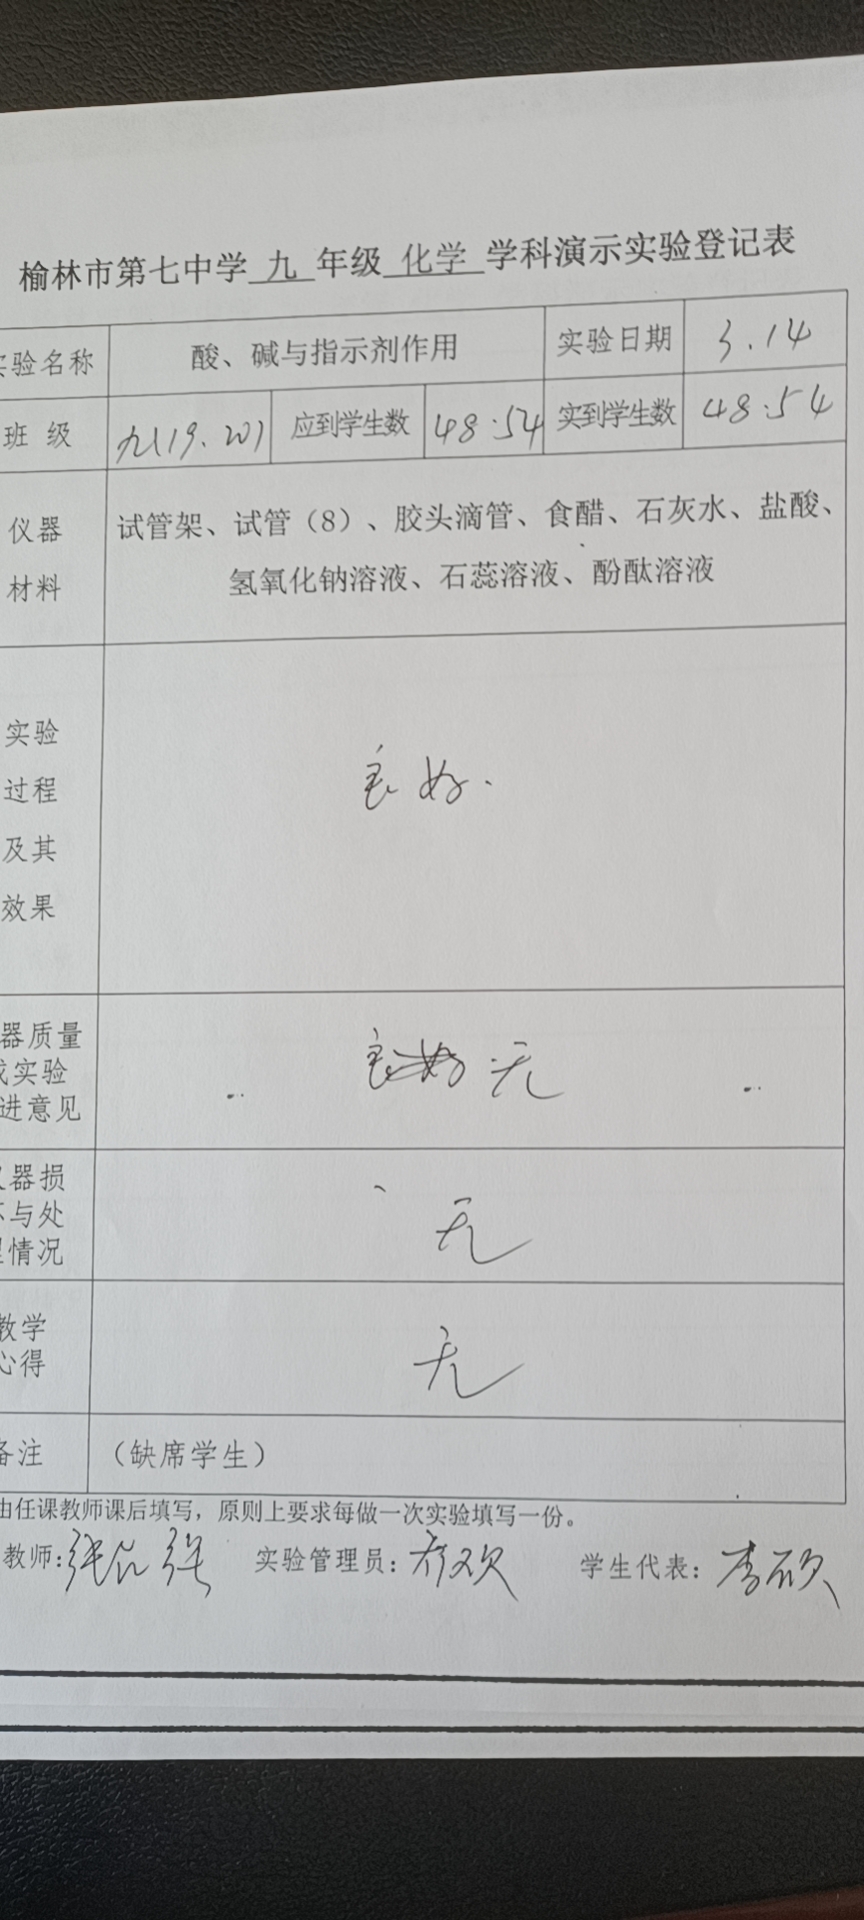 榆林市第七中学 九 年级 化学 学科演示实验登记表
实验名称 酸、碱与指示剂作用 实验日期 3.14
班 级 九(19.20) 应到学生数 48.54 实到学生数 48.54
仪器 试管架、试管（8）、胶头滴管、食醋、石灰水、盐酸、
材料 氢氧化钠溶液、石蕊溶液、酚酞溶液
实验
过程 良好.
及其
效果
器质量
或实验 无
进意见
器损
与处 无
情况
教学
心得 无
备注 （缺席学生）
由任课教师课后填写，原则上要求每做一次实验填写一份。
教师： 实验管理员： 学生代表：李硕